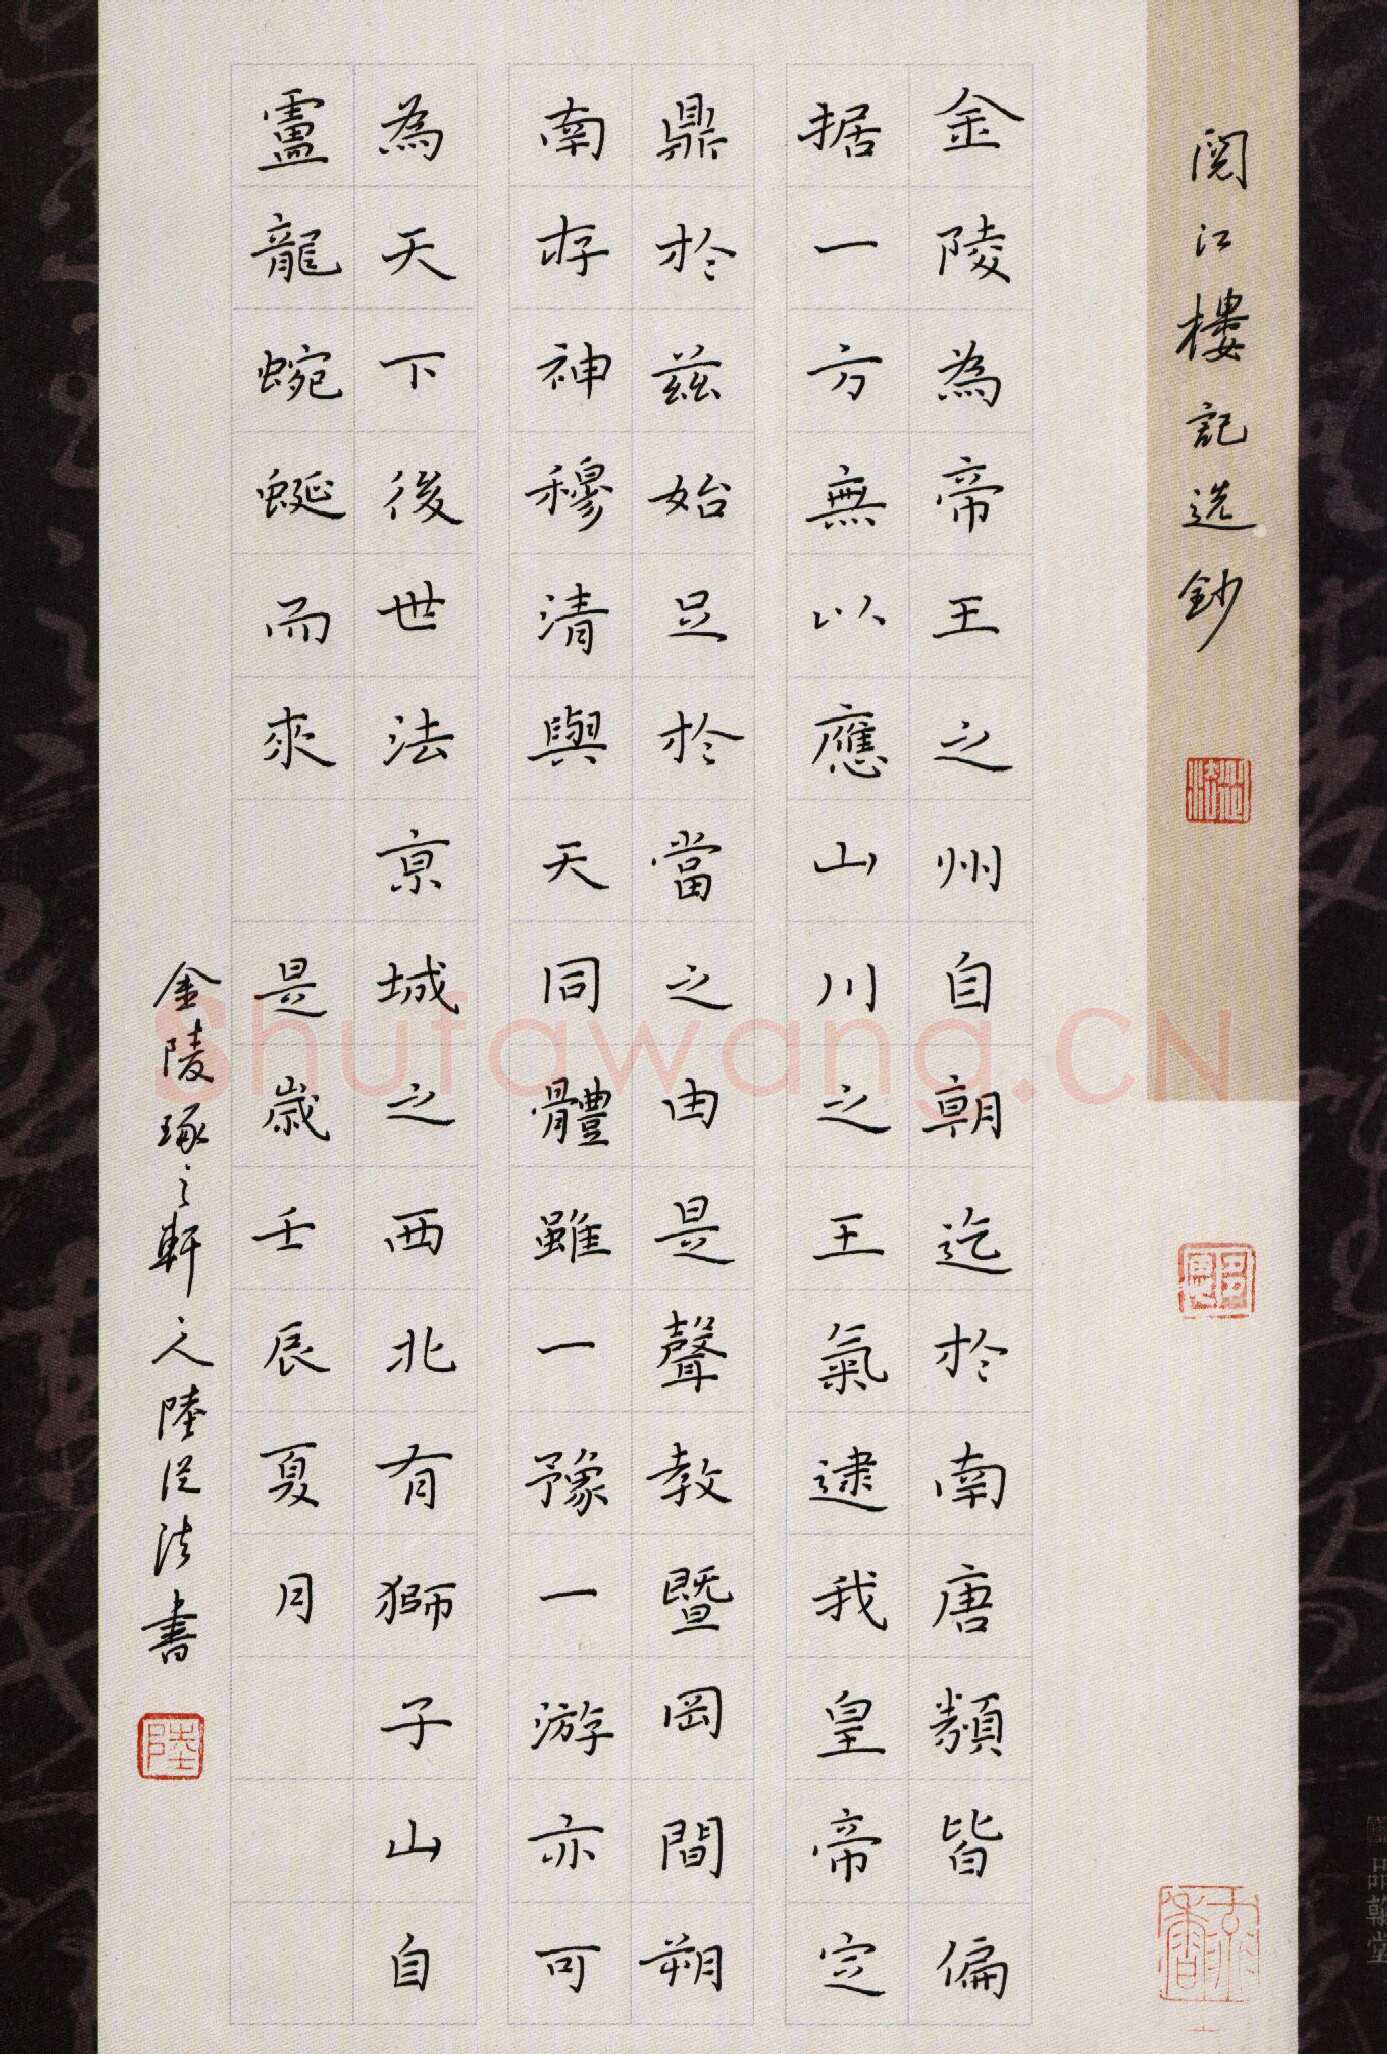 閱江樓記选鈔
金陵為帝王之州自朝迄於南唐類皆偏
据一方無以應山川之王氣逮我皇帝定
鼎於兹始足於當之由是聲教暨罔間朔
南存神穆清與天同體雖一豫一游亦可
為天下後世法京城之西北有獅子山自
盧龍蜿蜒而來 是歲壬辰夏月
金陵琢之軒人陸從法書
陸
品翰堂
Shufawang.CN